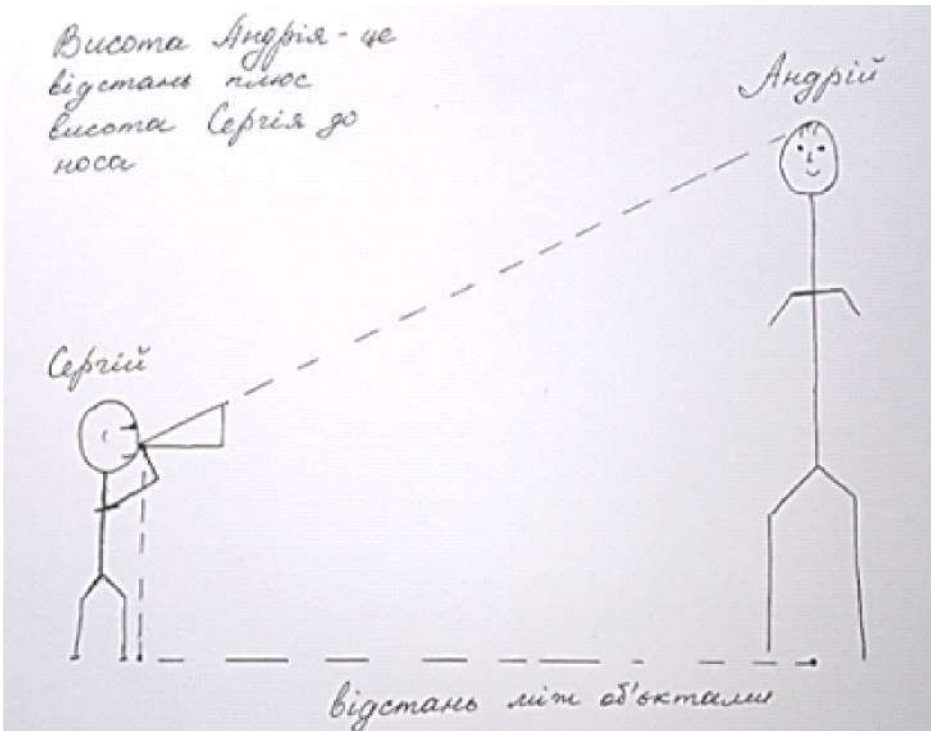 Висота Андрія - це
відстань плюс
висота Сергія до
носа
Андрій
Сергій
відстань між об'єктами